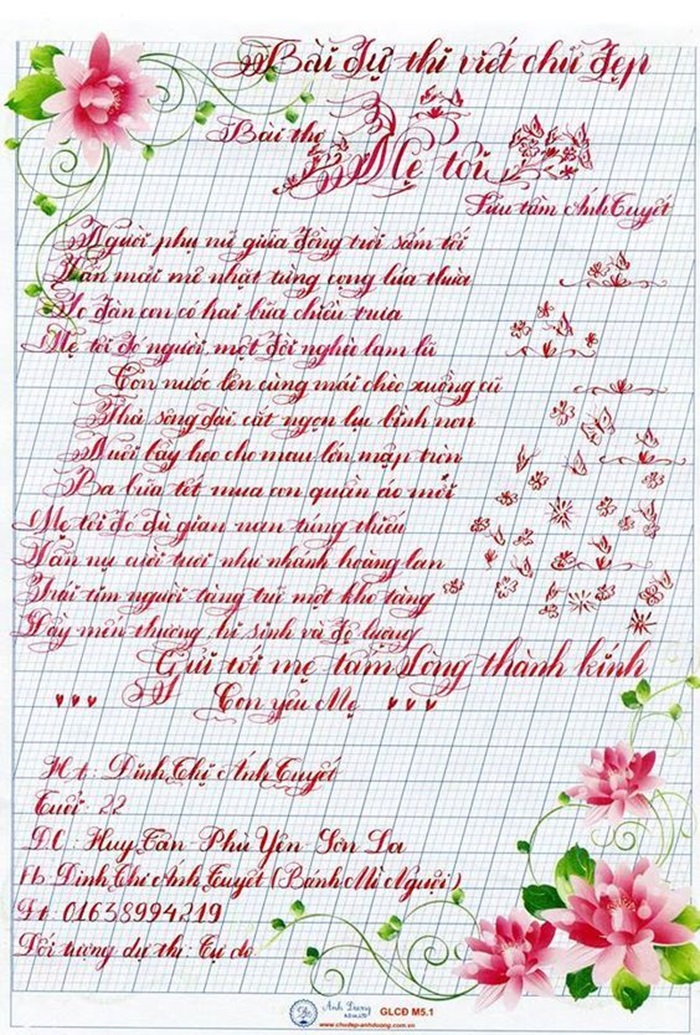 Bài dự thi viết chữ đẹp
Bài thơ
Mẹ tôi
Sưu tầm Ánh Tuyết
Người phụ nữ giữa đồng trời sẩm tối
Vẫn mải mê nhặt từng cọng lúa thừa
Lo đàn con có hai bữa chiều trưa
Mẹ tôi đó người một đời nghèo lam lũ
Con nước lên cùng mái chèo xuồng cũ
Thả sông dài cắt ngọn lục bình non
Nuôi bầy heo cho mau lớn mập tròn
Ba bữa tết mua con quần áo mới
Mẹ tôi đó dù gian nan túng thiếu
Vẫn nụ cười tươi như nhành hoàng lan
Trái tim người tàng trữ một kho tàng
Đầy mến thương hi sinh và độ lượng
Gửi tới mẹ tấm lòng thành kính
Con yêu Mẹ
Ht: Đinh Thị Ánh Tuyết
Tuổi: 22
ĐC: Huy Tân - Phù Yên - Sơn La
Fb: Đinh Thi Ánh Tuyết (Bánh Mì Nguội)
Đt: 01638994219
Đối tượng dự thi: Tự do
Ánh Dương GLCĐ M5.1
www.chudepanhduong.com.vn